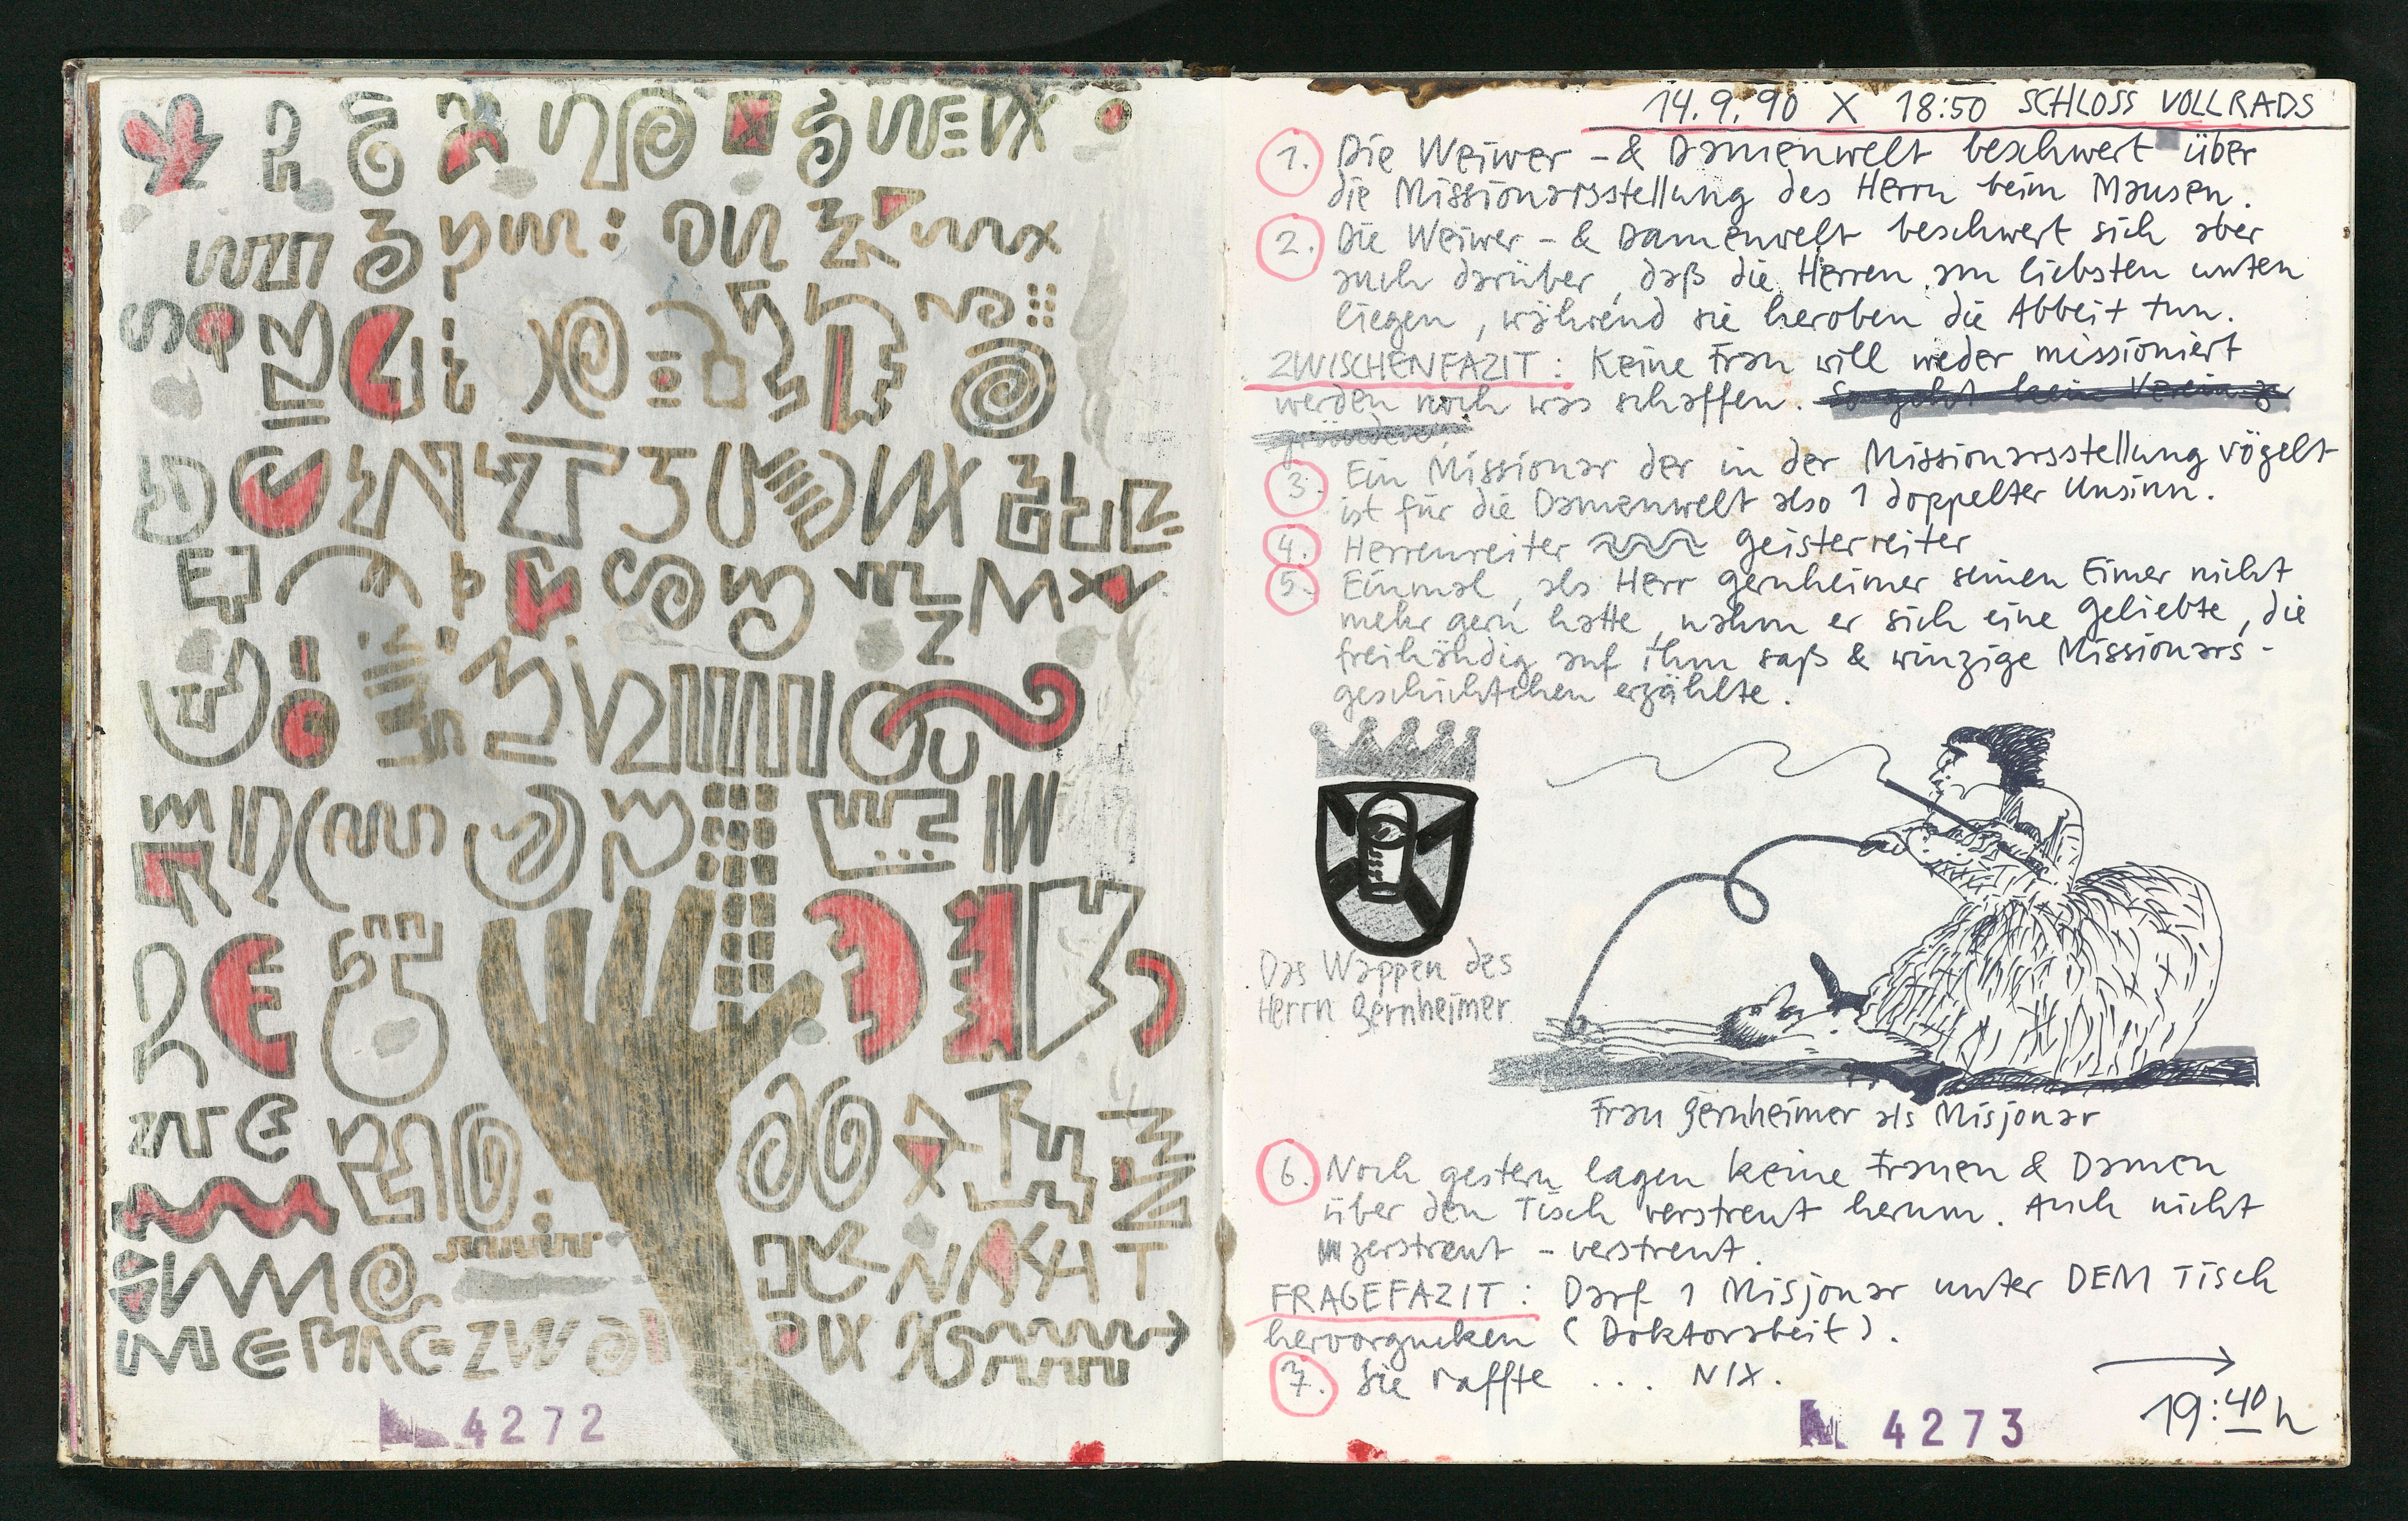 4272
14.9.90 X 18:50 SCHLOSS VOLLRADS
1. Die Weiwer - & Damenwelt beschwert über
die Missionarsstellung des Herrn beim Mausen.
2. Die Weiwer - & Damenwelt beschwert sich aber
auch darüber, daß die Herren am liebsten unten
liegen, während sie heroben die Abbeit tun.
ZWISCHENFAZIT: Keine Frau will weder missioniert
werden noch was schaffen. So geht kein Verein z
gründen.
3. Ein Missionar der in der Missionarsstellung vögelt
ist für die Damenwelt also 1 doppelter Unsinn.
4. Herrenreiter Geisterreiter
5. Einmal, als Herr Gernheimer seinen Eimer nicht
mehr gern hatte, nahm er sich eine Geliebte, die
freihändig auf ihm saß & winzige Missionars-
geschichtchen erzählte.
Das Wappen des
Herrn Gernheimer
Frau Gernheimer als Misjonar
6. Noch gestern lagen keine Frauen & Damen
über den Tisch verstreut herum. Auch nicht
zerstreut - verstreut.
FRAGEFAZIT: Darf 1 Misjonar unter DEM Tisch
hervorgucken (Doktorabeit).
7. Sie raffte ... NIX.
→
19:40 h
4273